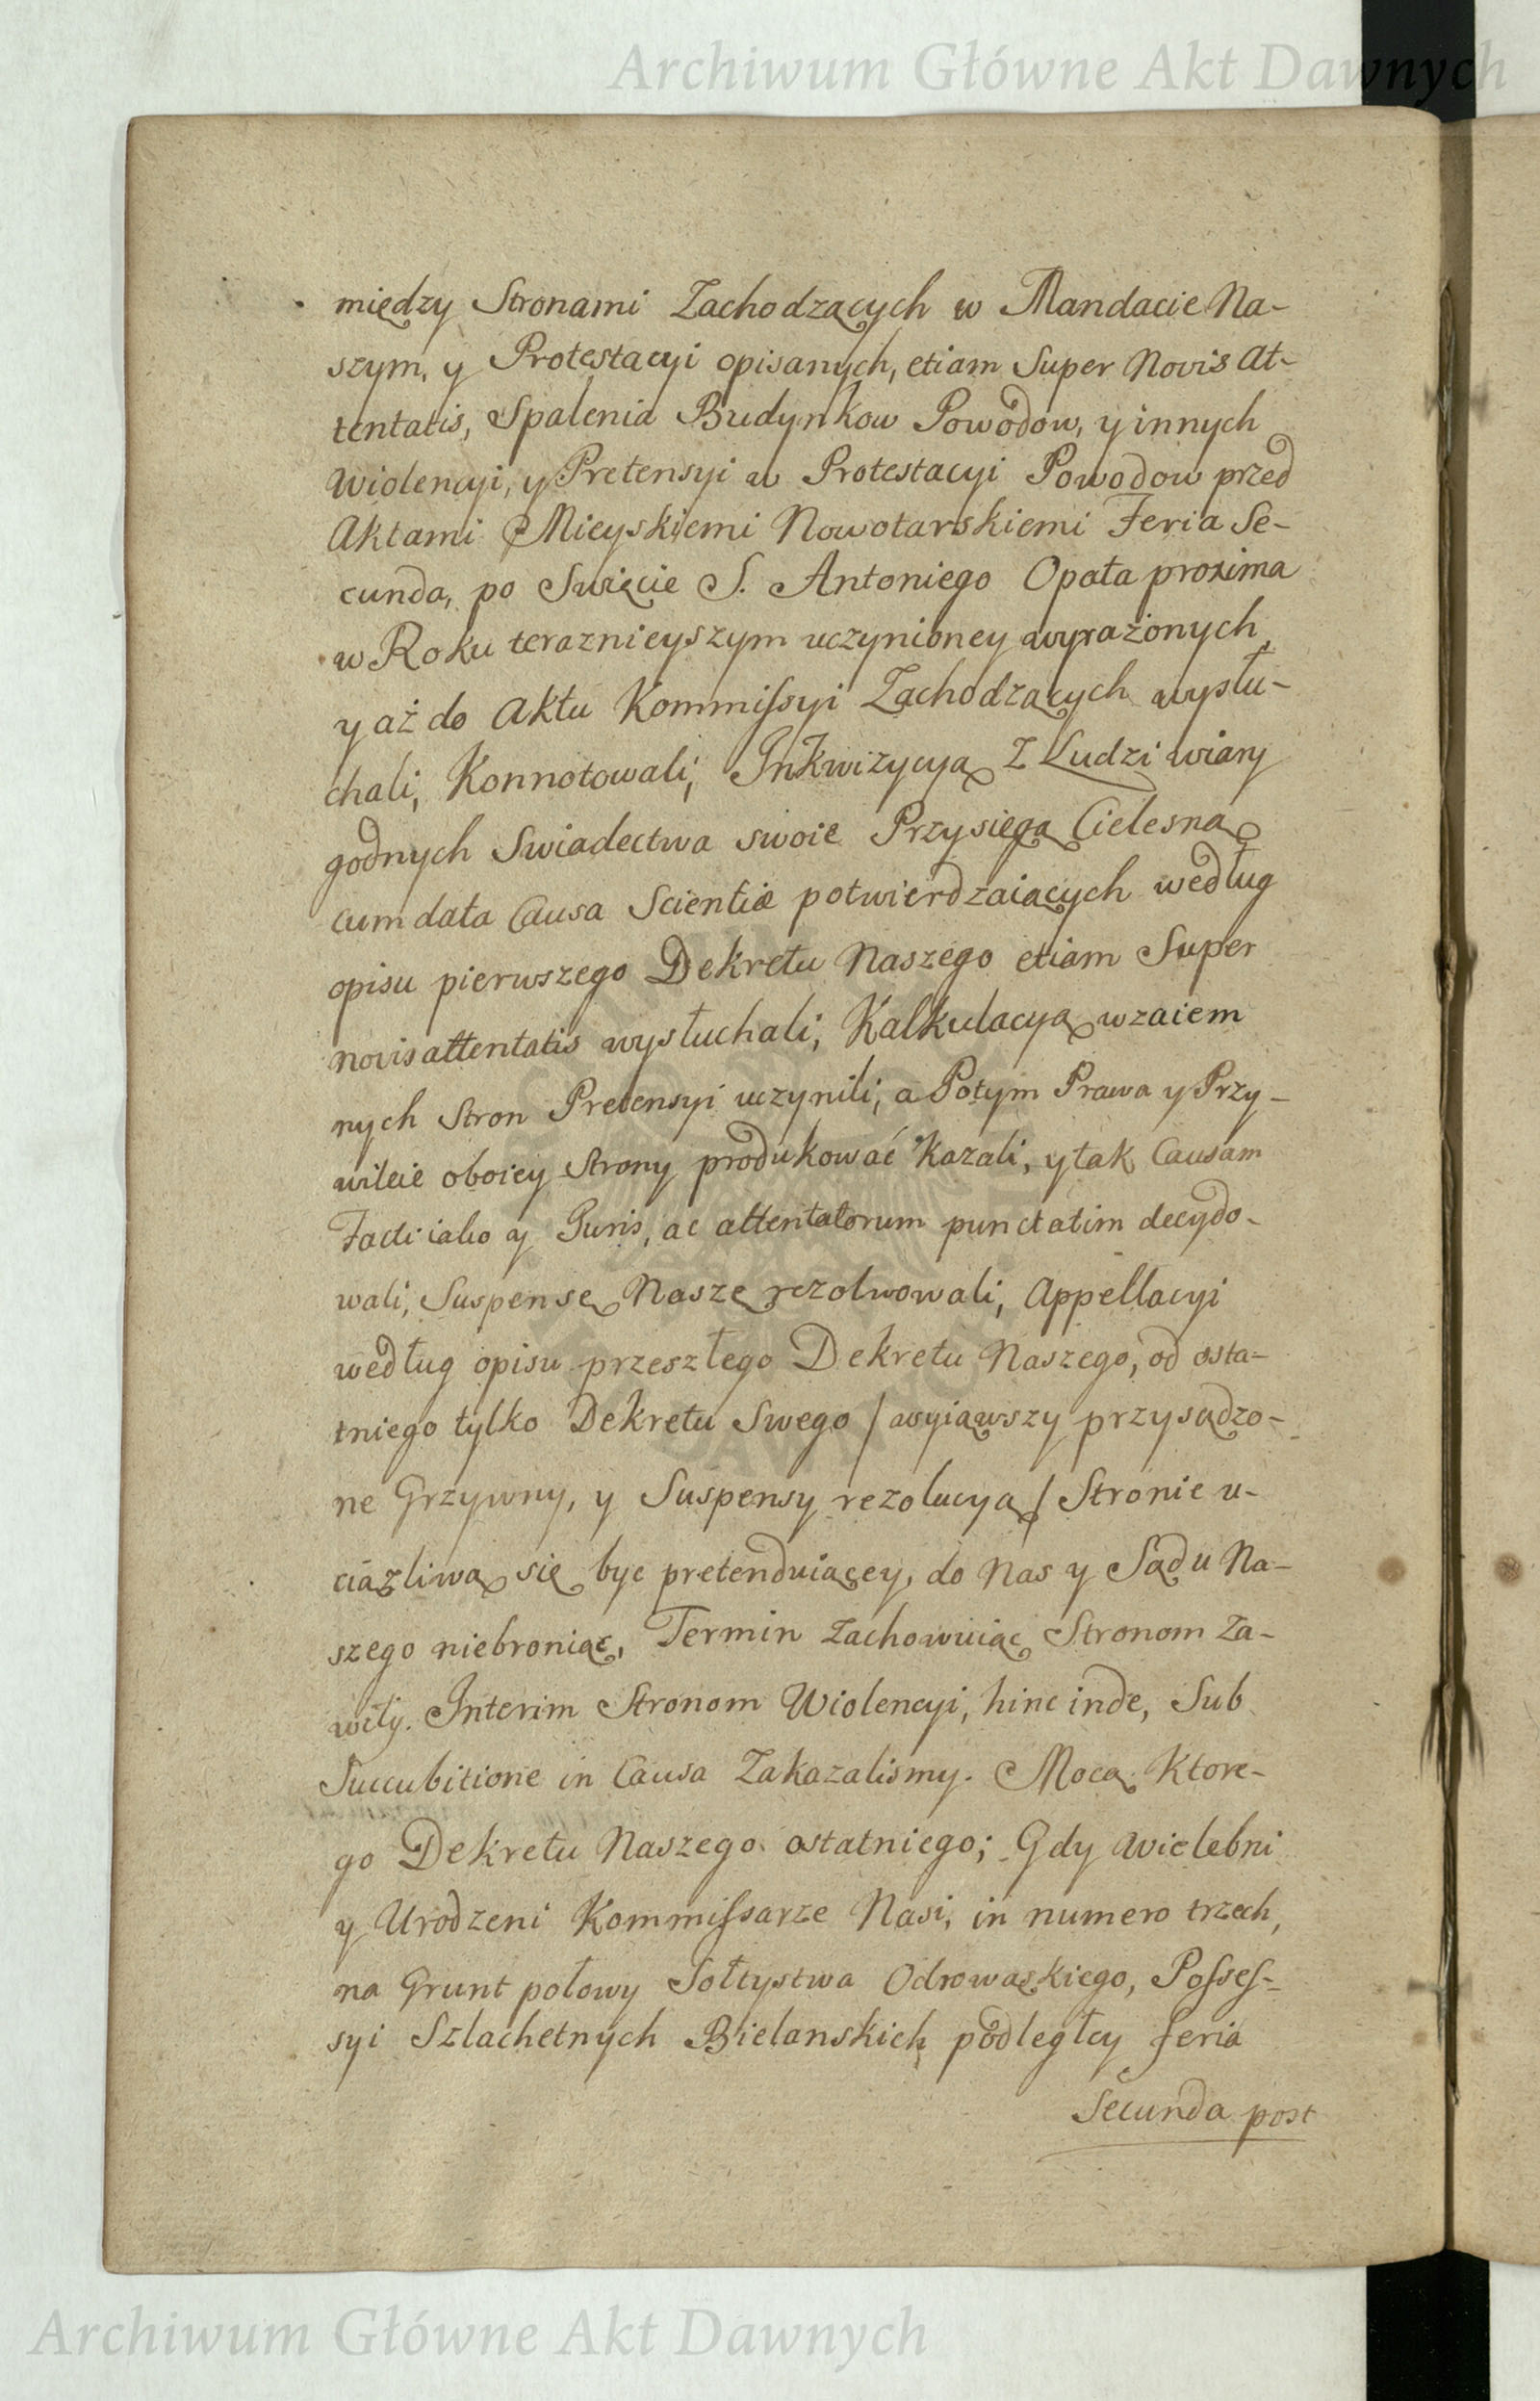 Archiwum Główne Akt Dawnych
między Stronami Zachodzących w Mandacie Na-
szym, y Protestacyi opisanych, etiam Super Novis At-
tentatis, Spalenia Budynkow Powodow, y innych
Wiolencyi, y Pretensyi w Protestacyi Powodow przed
Aktami Mieyskiemi Nowotarskiemi Feria Se-
cunda, po Swięcie S. Antoniego Opata proxima
w Roku teraznieyszym uczynioney wyrażonych,
y aż do Aktu Kommissyi Zachodzących wysłu-
chali, Konnotowali, Inkwizycyą z Ludzi wiary
godnych Swiadectwa swoie Przysięgą Cielesną
cum data Causa Scientiæ potwierdzaiących według
opisu pierwszego Dekretu Naszego etiam Super
novis attentatis wysłuchali, Kalkulacyą wzaiem
nych Stron Pretensyi uczynili, a Potym Prawa y Przy-
wileie oboiey Strony produkować kazali, y tak Causam
Facti iako y Juris, ac attentatorum punctatim decydo-
wali, Suspensę Naszę rezolwowali, Appellacyi
według opisu przeszłego Dekretu Naszego, od osta-
tniego tylko Dekretu Swego / wyiąwszy przysądzo-
ne Grzywny, y Suspensy rezolucyą / Stronie u-
ciążliwą się byc pretenduiącey, do Nas y Sądu Na-
szego niebroniąc, Termin zachowuiąc Stronom Za-
wity. Interim Stronom Wiolencyi, hinc inde, Sub
Succubitione in Causa Zakazalismy. Mocą Ktore-
go Dekretu Naszego ostatniego; Gdy Wielebni
y Urodzeni Kommissarze Nasi, in numero trzech,
na Grunt połowy Sołtystwa Odrowąskiego, Posses-
syi Szlachetnych Bielanskich podległey feria
Secunda post
Archiwum Główne Akt Dawnych